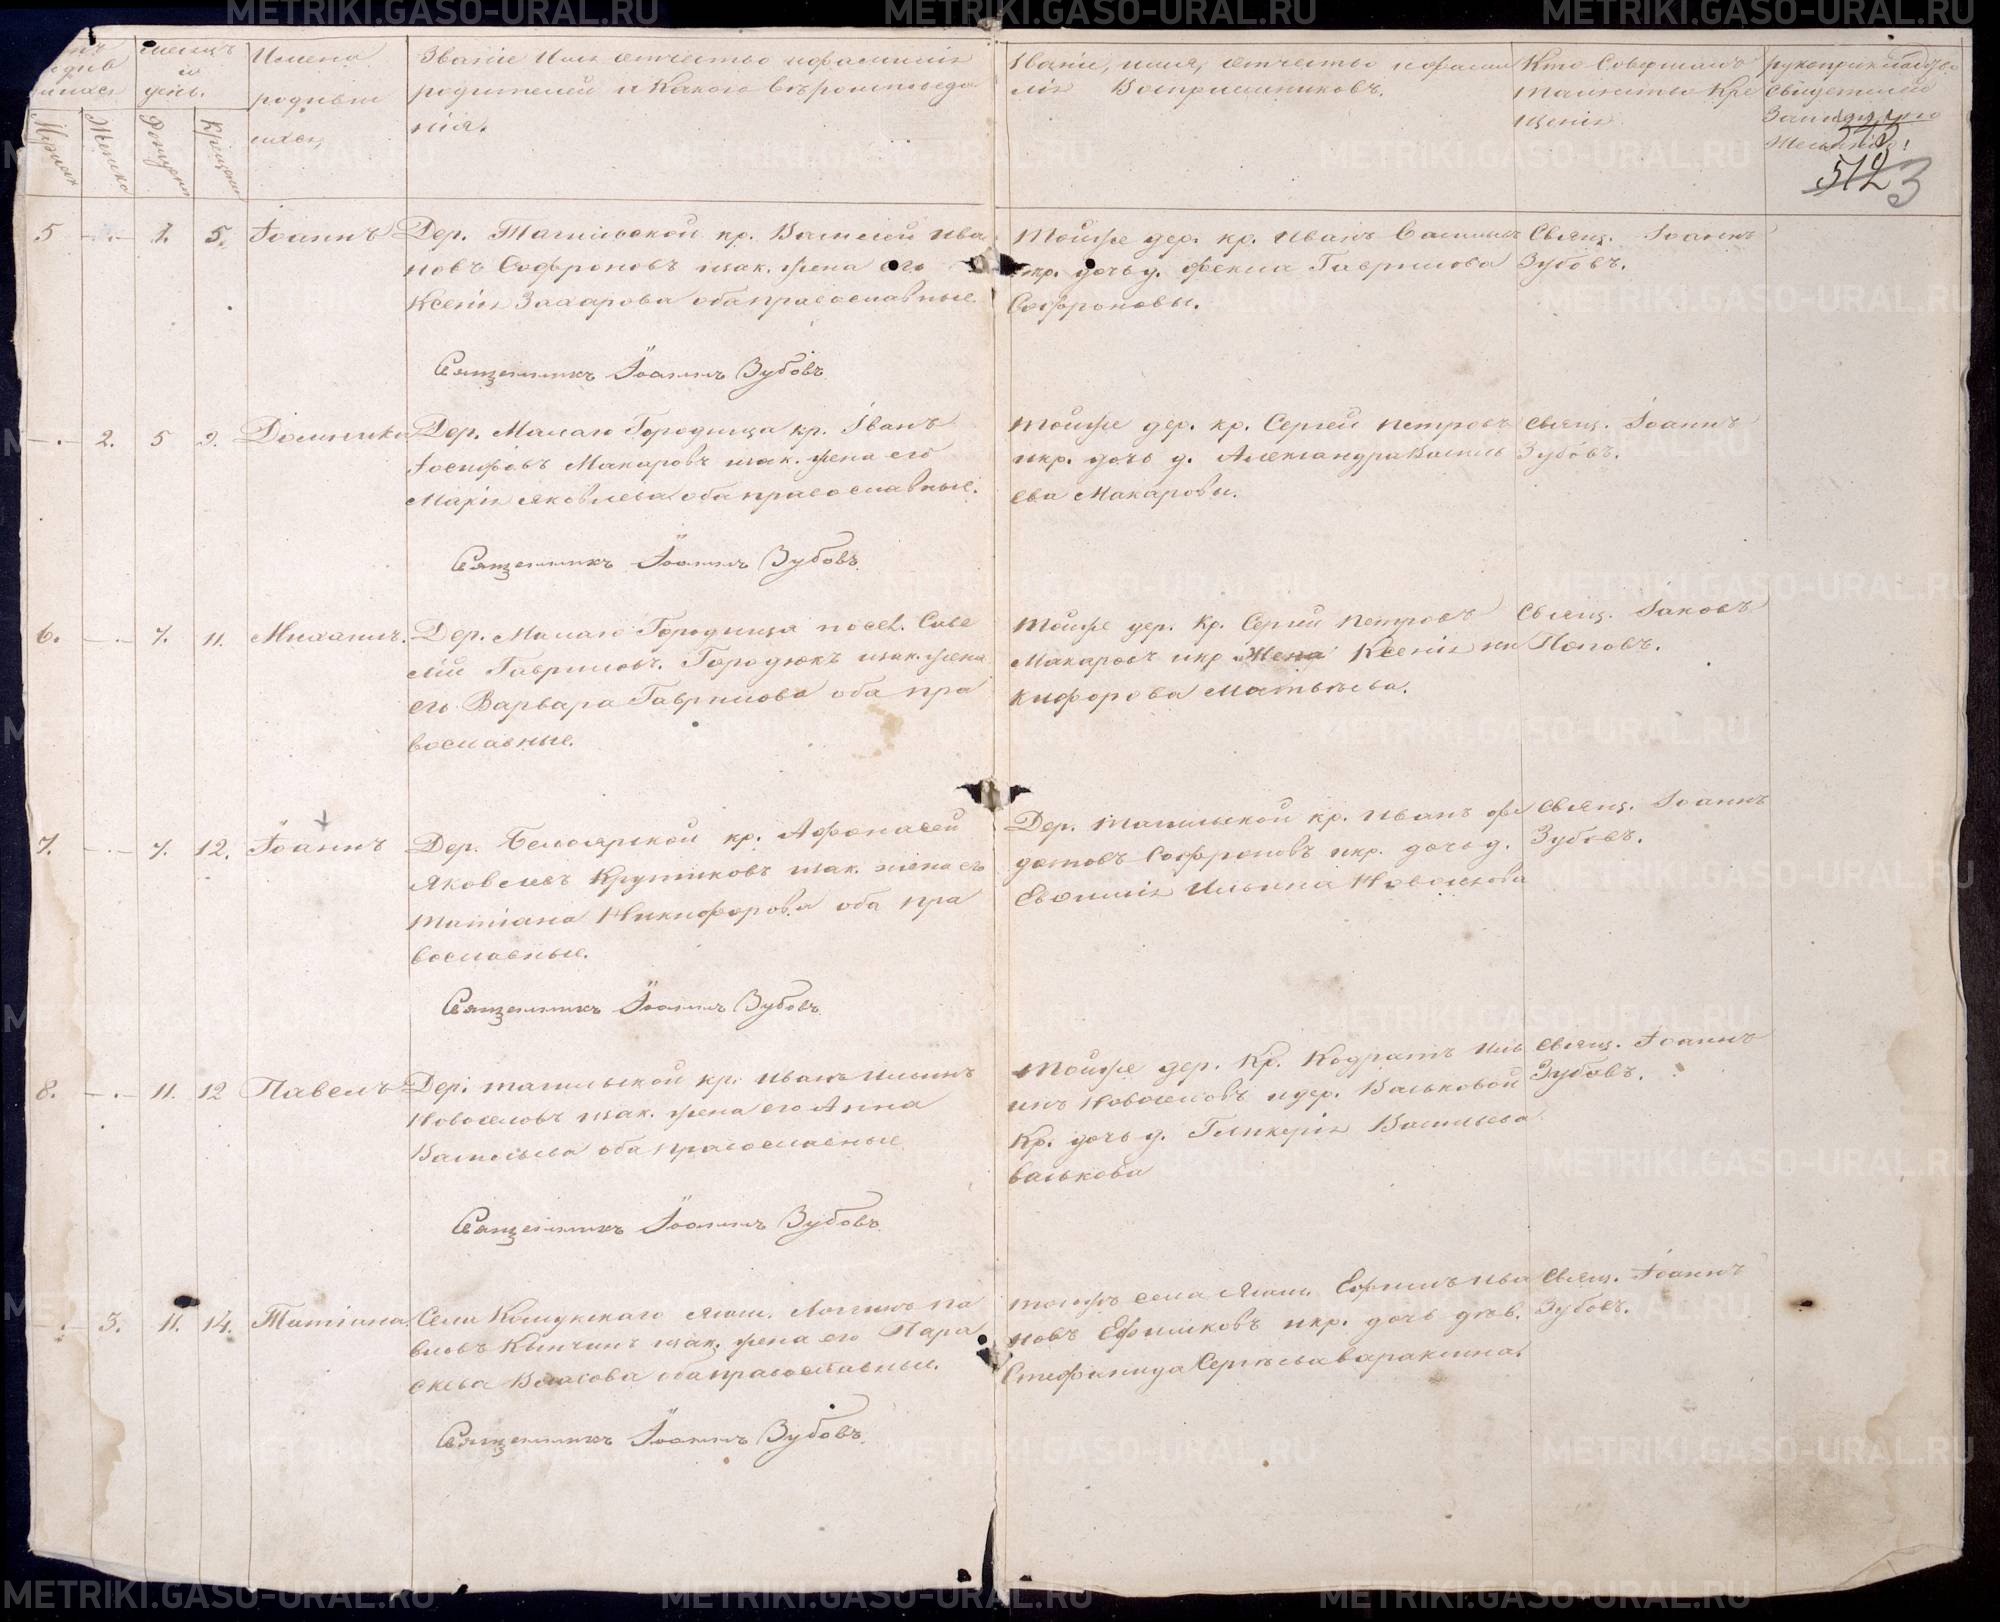 Имена
родивши
ихся
Званіе Имя отчество и фамилія
родителей и Какого вѣроисповѣда
нія.
Званіе, имя, отчество и фами
лія Воспріемниковъ.
Кто Совершалъ
таинство Кре
щенія
Мѣсяцъ
и
день.
512 3
5 1. 5. Іоаннъ
Дер. Тагильской кр. Василій Ива
новъ Софроновъ зак. жена его
Ксенія Захарова оба православные.
Тойже дер. кр. Иванъ
и кр. дочь д. Фекла Гаврилова
Софроновы.
Свящ. Іоаннъ
Зубовъ.
Священникъ Іоаннъ Зубовъ
2. 5 9. Домника
Дер. Малаго Городища кр. Іванъ
Іосифовъ Макаровъ зак. жена его
Марія Яковлева оба православные.
Тойже дер. кр. Сергей Петровъ
и кр. дочь д. Александра Василь
ева Макаровы.
Свящ. Іоаннъ
Зубовъ.
Священникъ Іоаннъ Зубовъ
6. 7. 11. Михаилъ.
Дер. Малаго Городища посел. Саве
лій Гавриловъ Городюкъ зак. жена
его Варвара Гаврилова оба пра
вославные.
Тойже дер. Кр. Сергей Петровъ
Макаровъ и кр Жена Ксенія Ни
кифорова Матвѣева.
Свящ. Іаковъ
Поповъ.
7. 7. 12. Іоаннъ
Дер. Белоярской кр. Афонасей
Яковлевъ Крутиковъ зак. жена его
Татіана Никифорова оба пра
вославные.
Дер. Тагильской кр. Иванъ Фе
дотовъ Софроновъ и кр. дочь д.
Евфимія Ильина Новоселова
Свящ. Іоаннъ
Зубовъ.
Священникъ Іоаннъ Зубовъ
8. 11. 12 Павелъ
Дер. Тагильской кр. Иванъ Ильинъ
Новоселовъ зак. жена его Анна
Васильева оба православные
Тойже дер. Кр. Кодратъ Иль
инъ Новоселовъ и дер. Вальковой
Кр. дочь д. Гликерія Васильева
Валькова
Свящ. Іоаннъ
Зубовъ.
Священникъ Іоаннъ Зубовъ
3. 11. 14. Татіана
Села Кошукскаго Логинъ Па
вловъ зак. жена его Пара
скева Власова оба православные.
тогожъ села Ефимъ Ива
новъ Ефимковъ и кр. дочь дѣв.
Стефанида Сергѣева Вараксина.
Свящ. Іоаннъ
Зубовъ.
Священникъ Іоаннъ Зубовъ
METRIKI.GASO-URAL.RU